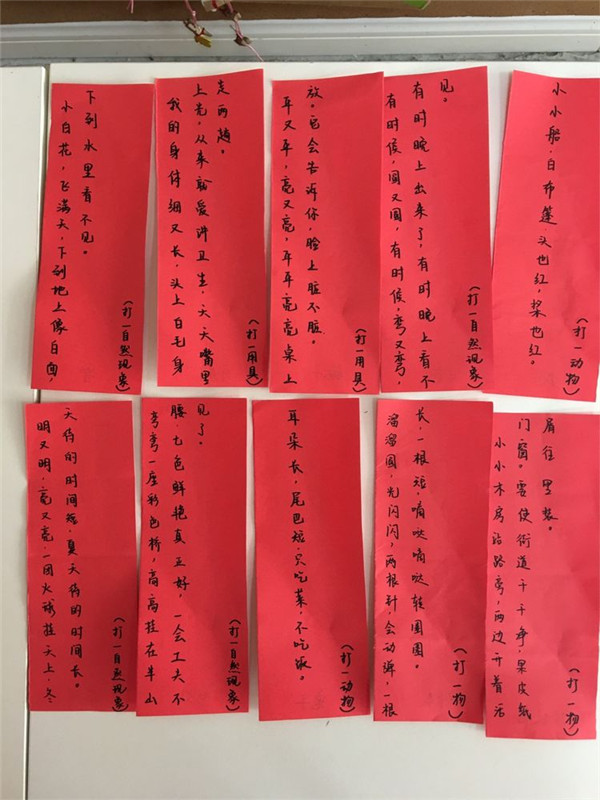 小白花,飞满天,下到地上像白面,
下到水里看不见。
(打一自然现象)
我的身体细又长,头上白毛身
上光,从来就爱讲卫生,天天嘴里
走两趟。
(打一用具)
平又平,亮又亮,平平亮亮桌上
放。它会告诉你,脸上脏不脏。
(打一用具)
有时候,圆又圆,有时候,弯又弯,
有时晚上出来了,有时晚上看不
见。
(打一自然现象)
小小船,白布篷头也红,桨也红。
(打一动物)
明又明,亮又亮,一团火球挂天上,冬
天你的时间短,夏天你的时间长。
(打一自然现象)
弯弯一座彩色桥,高高挂在半山
腰,七色鲜艳真正好,一会工夫不
见了。
(打一自然现象)
耳朵长,尾巴短,只吃菜,不吃饭。
(打一动物)
溜溜圆,光闪闪,两根针,会动弹,一根
长,一根短,嘀哒嘀哒转圆圆。
(打一物)
小小木房站路旁,两边开着活
门窗。要使街道干干净,果皮纸
屑往里装。
(打一物)